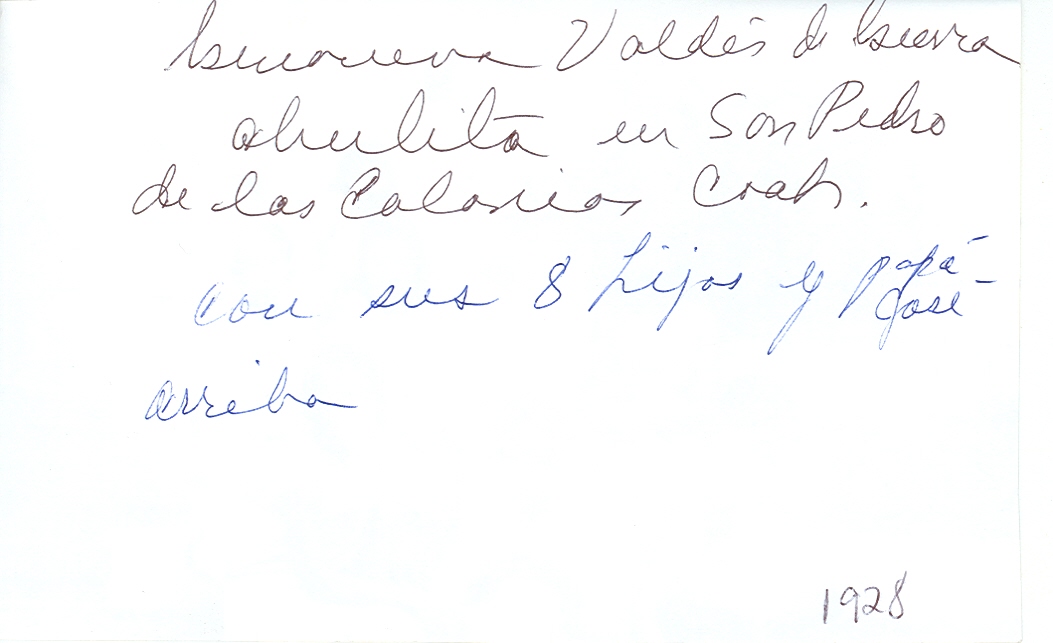 Genoveva Valdés de Guerra
abuelita en San Pedro
de las Colonias Coah.
con sus 8 hijos y papá
José
arriba
1928